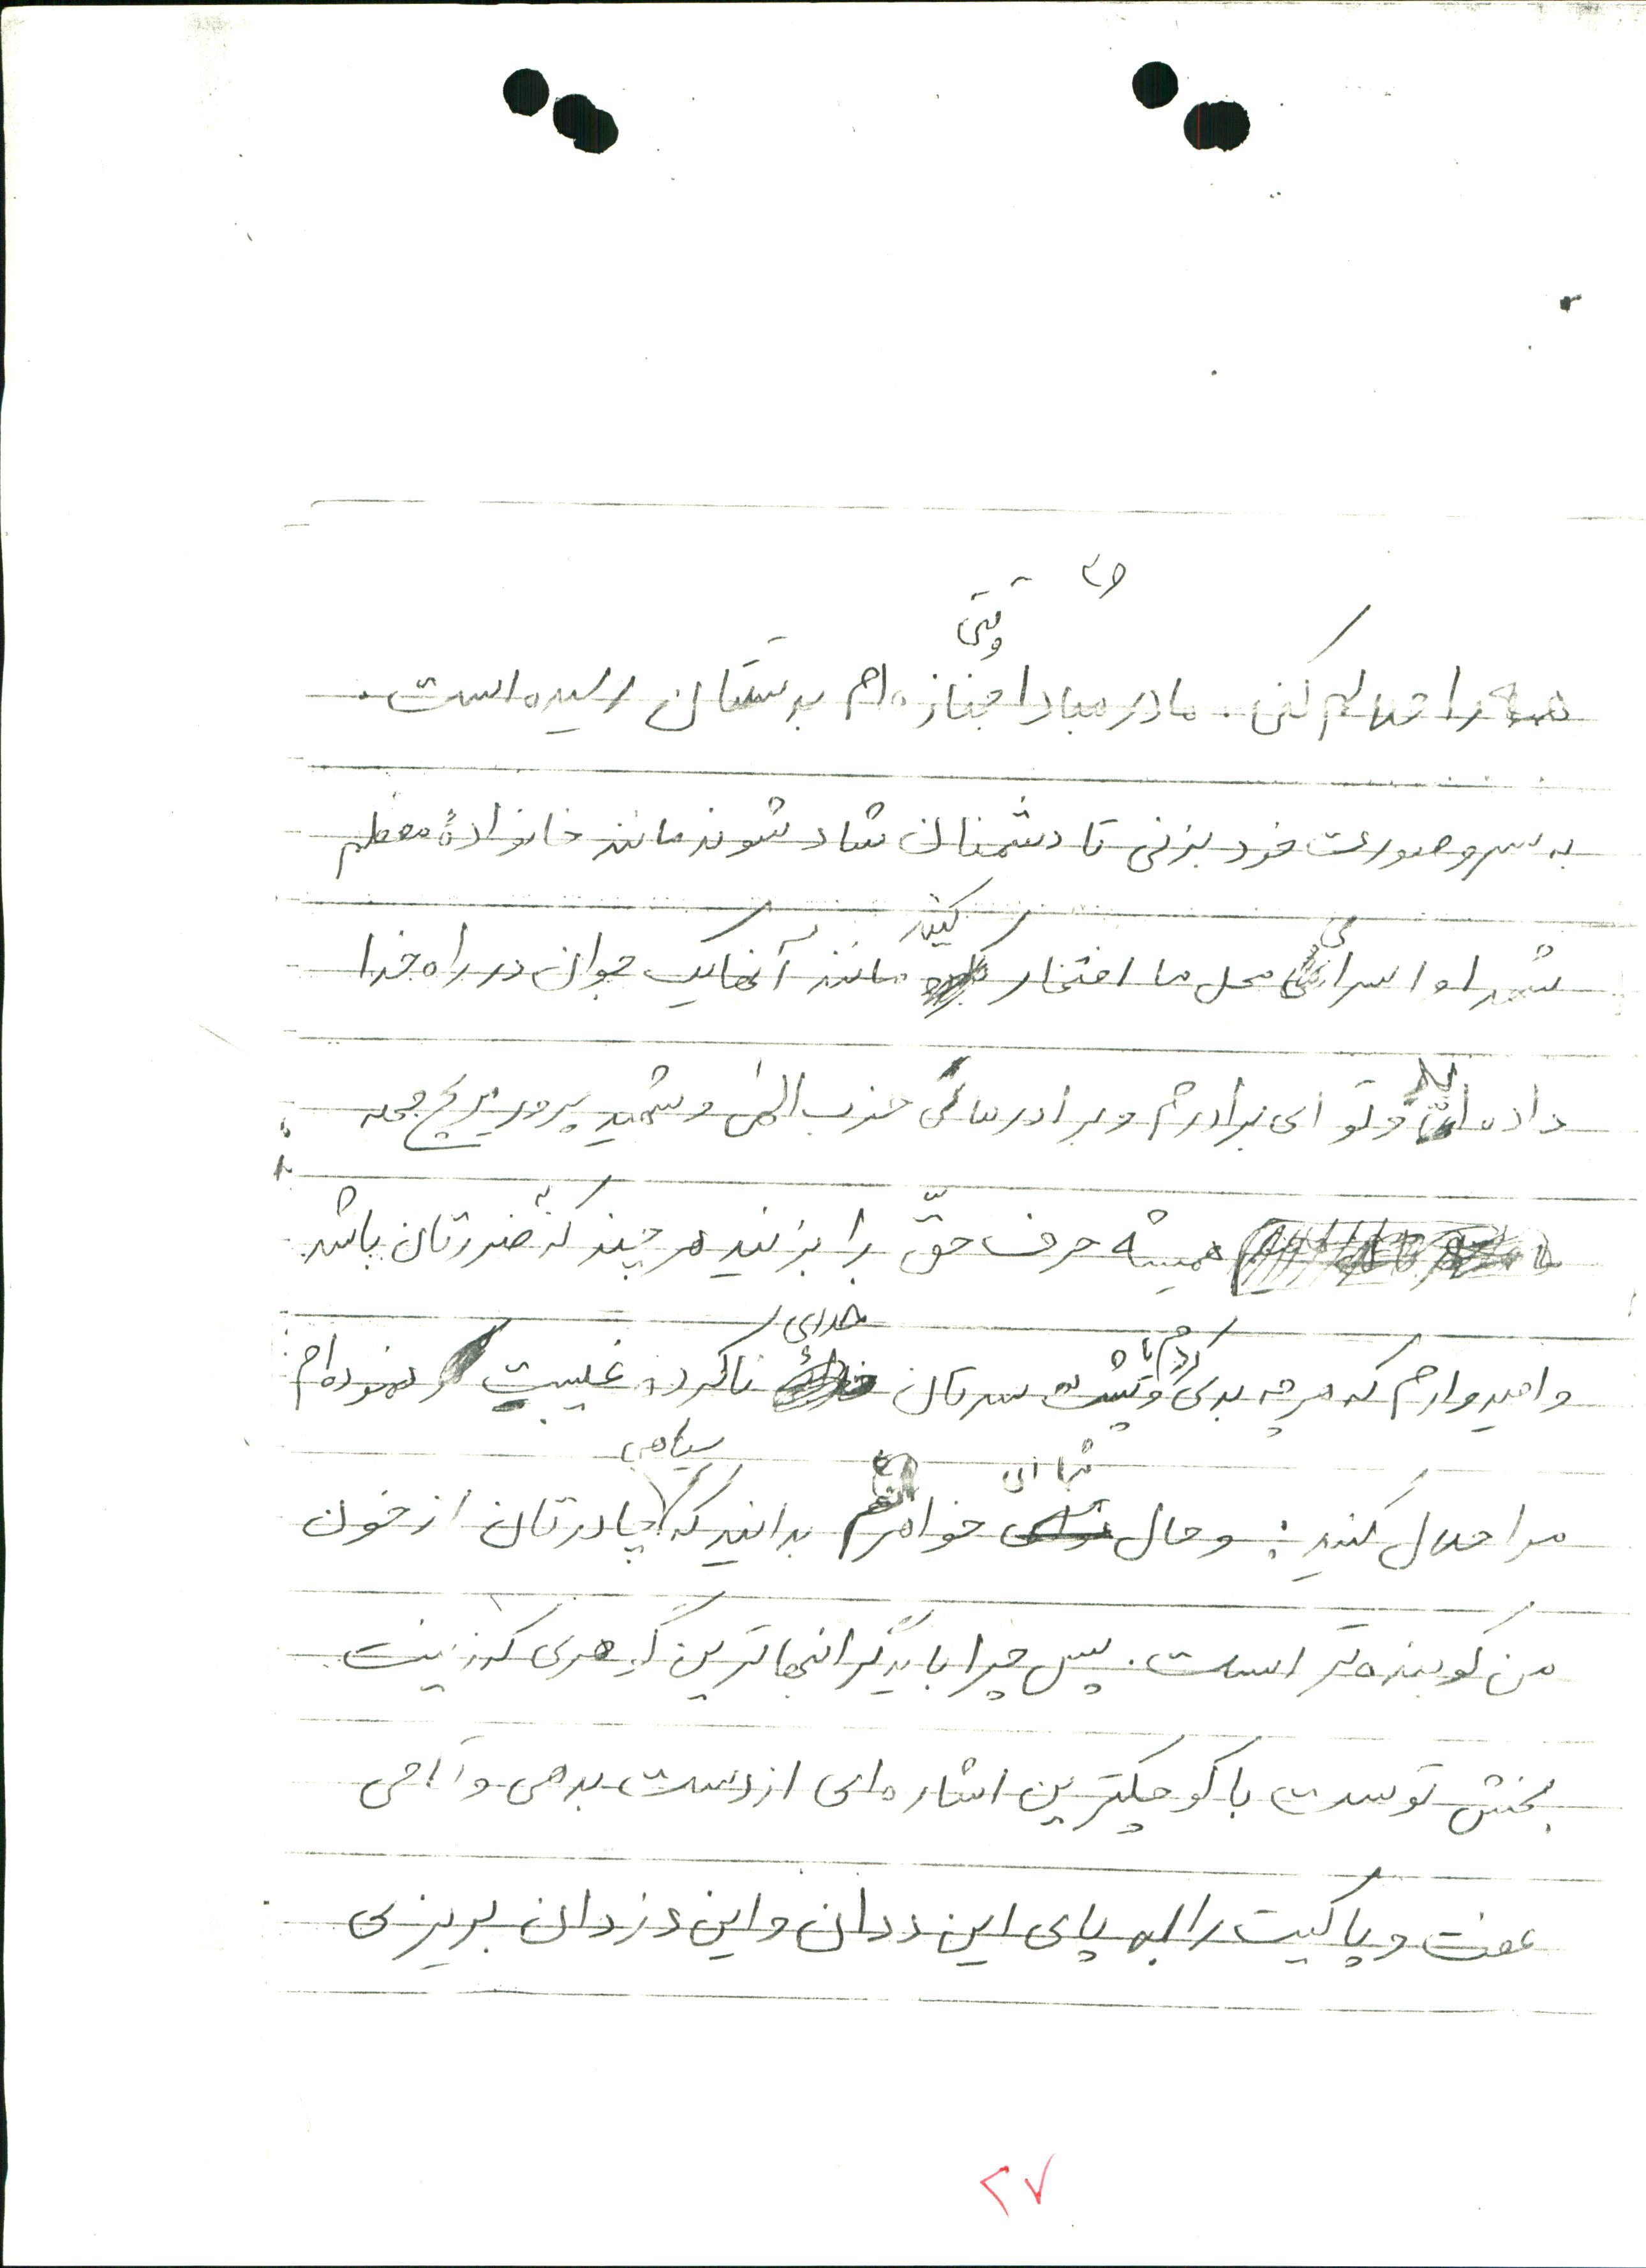 وقتی
همه را حلالم کنی. مادر مبادا جنازه ام بدستتان رسیده است.
به سر و صورت خود بزنی تا دشمنان شاد شوند مانند خانوادهٔ معظم
کنید
شهدا و اسرای محل ما افتخار مانند آنها یک جوان در راه خدا
داده اید و تو ای برادرم و برادرهای حزب الهی و شهید پرور
همیشه حرف حقّ را بزنید هر چند که به ضررتان باشد
کردم یا خدای
و امیدوارم که هر چه بدی و پشت سرتان ناکرده غیبت نموده ام
شما ای سیاهی
مرا حلال کنید: و حال خواهرم بدانید که چادرتان از خون
من کوبنده تر است. پس چرا باید گرانبهاترین گوهری که زینت
بخش توست با کوچکترین اشاره ای از دست بدهی و
عفت و پاکیت را به پای این ددان و این دزدان بریزی
۲۷